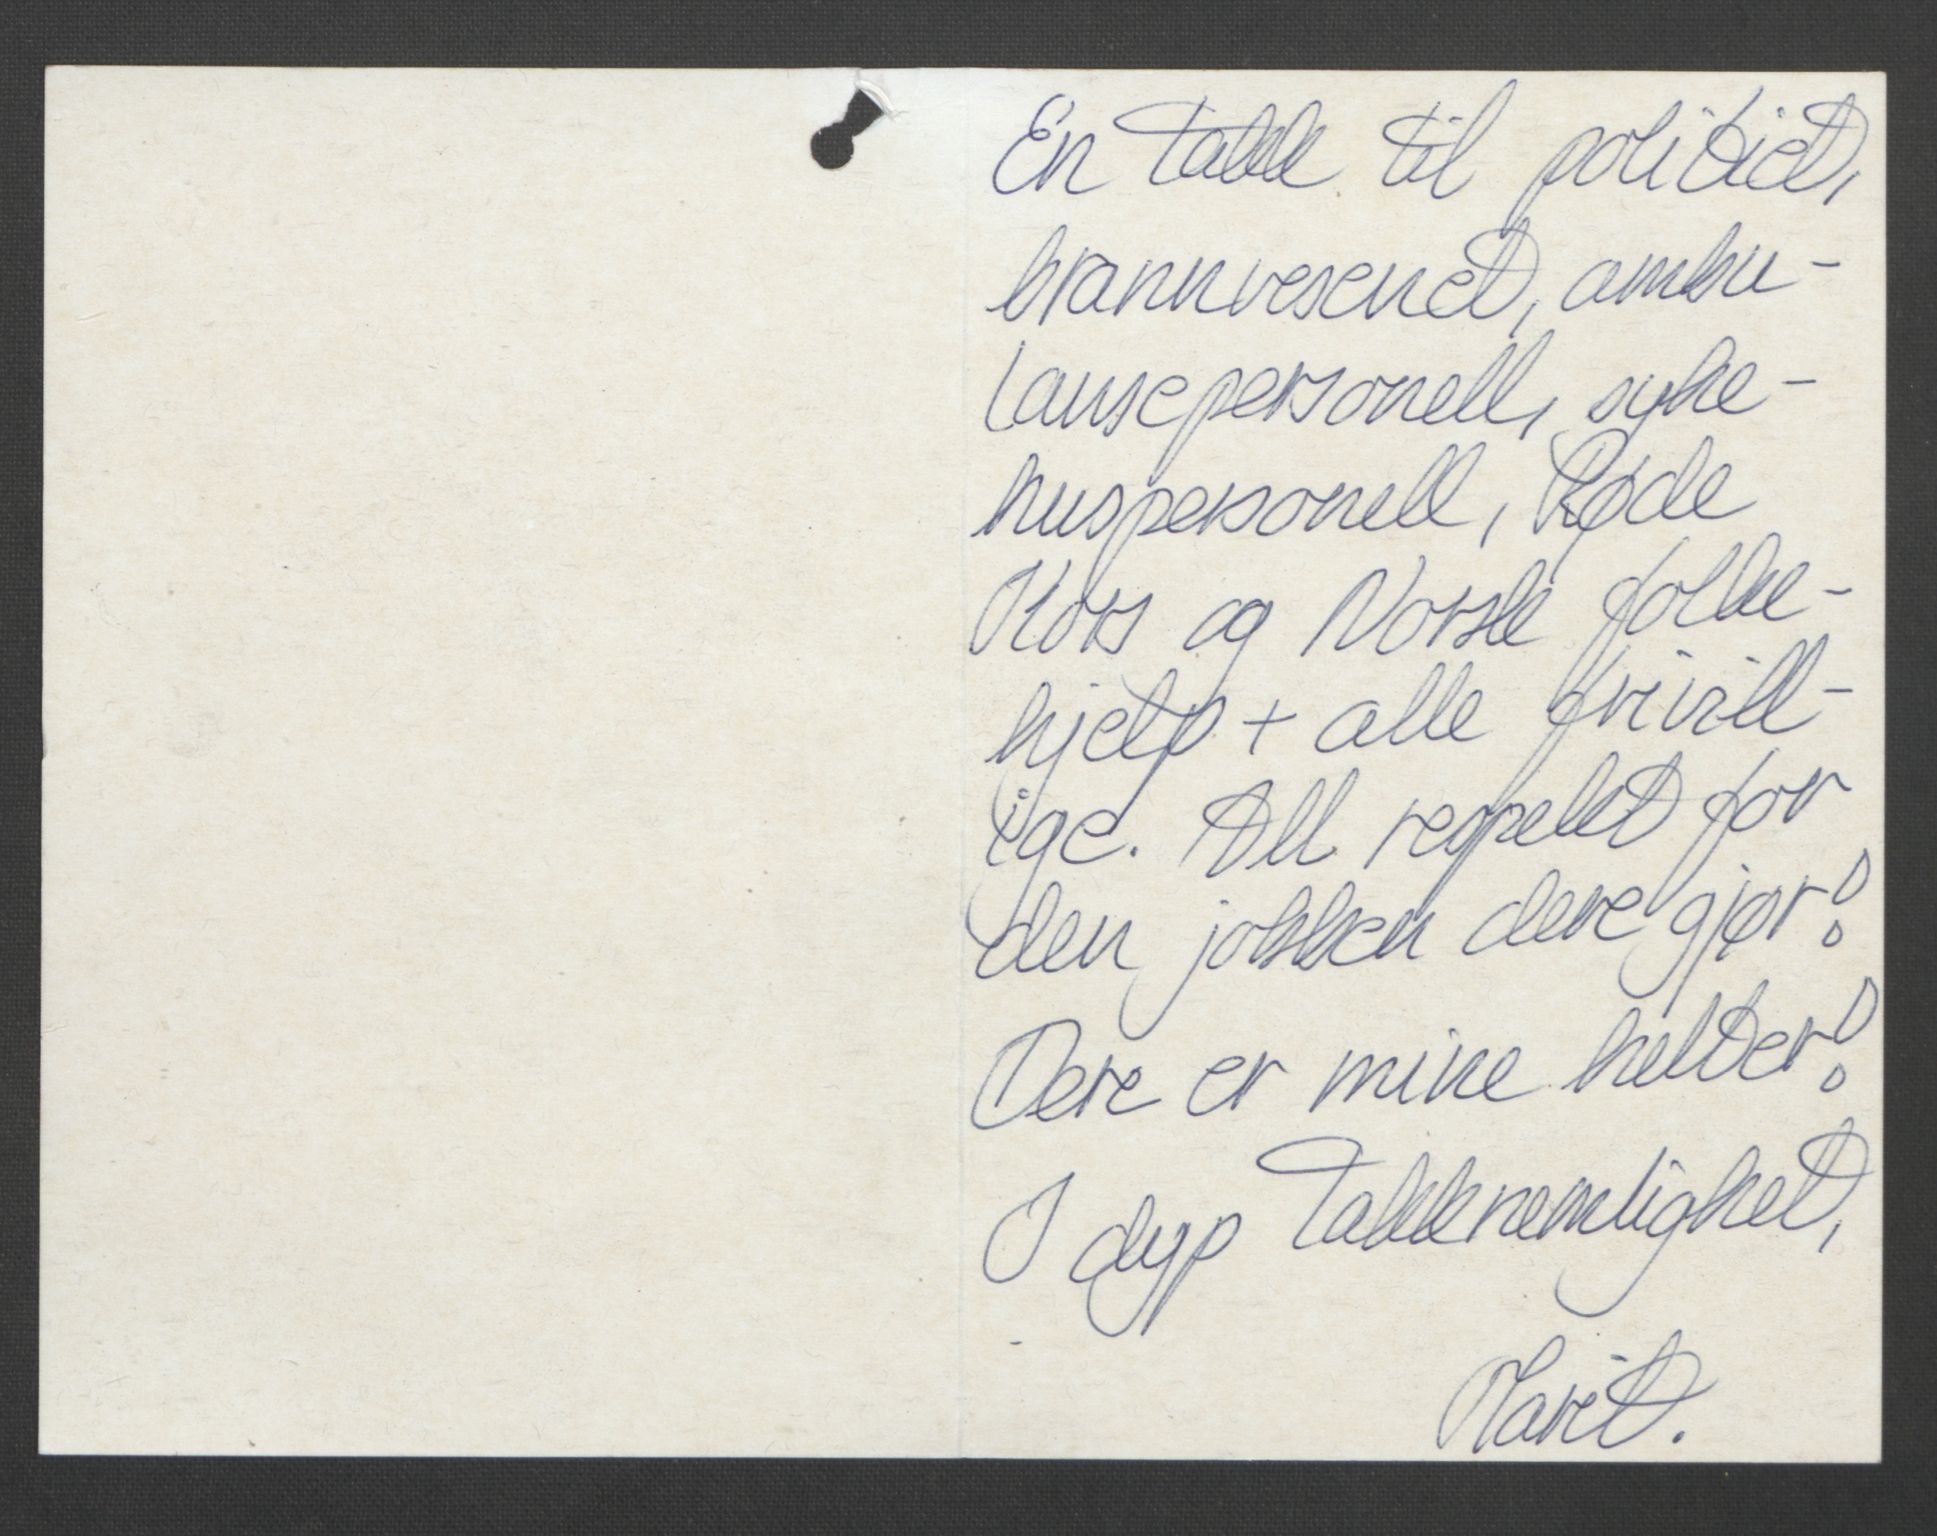 En takk til politiet,
brannvesenet, ambu-
lansepersonell, syke-
huspersonell, Røde
Kors og Norsk folke-
hjelp + alle frivill-
ige. All respekt for
den jobben dere gjør!
Dere er mine helter!
I dyp takknemlighet,
Marit.